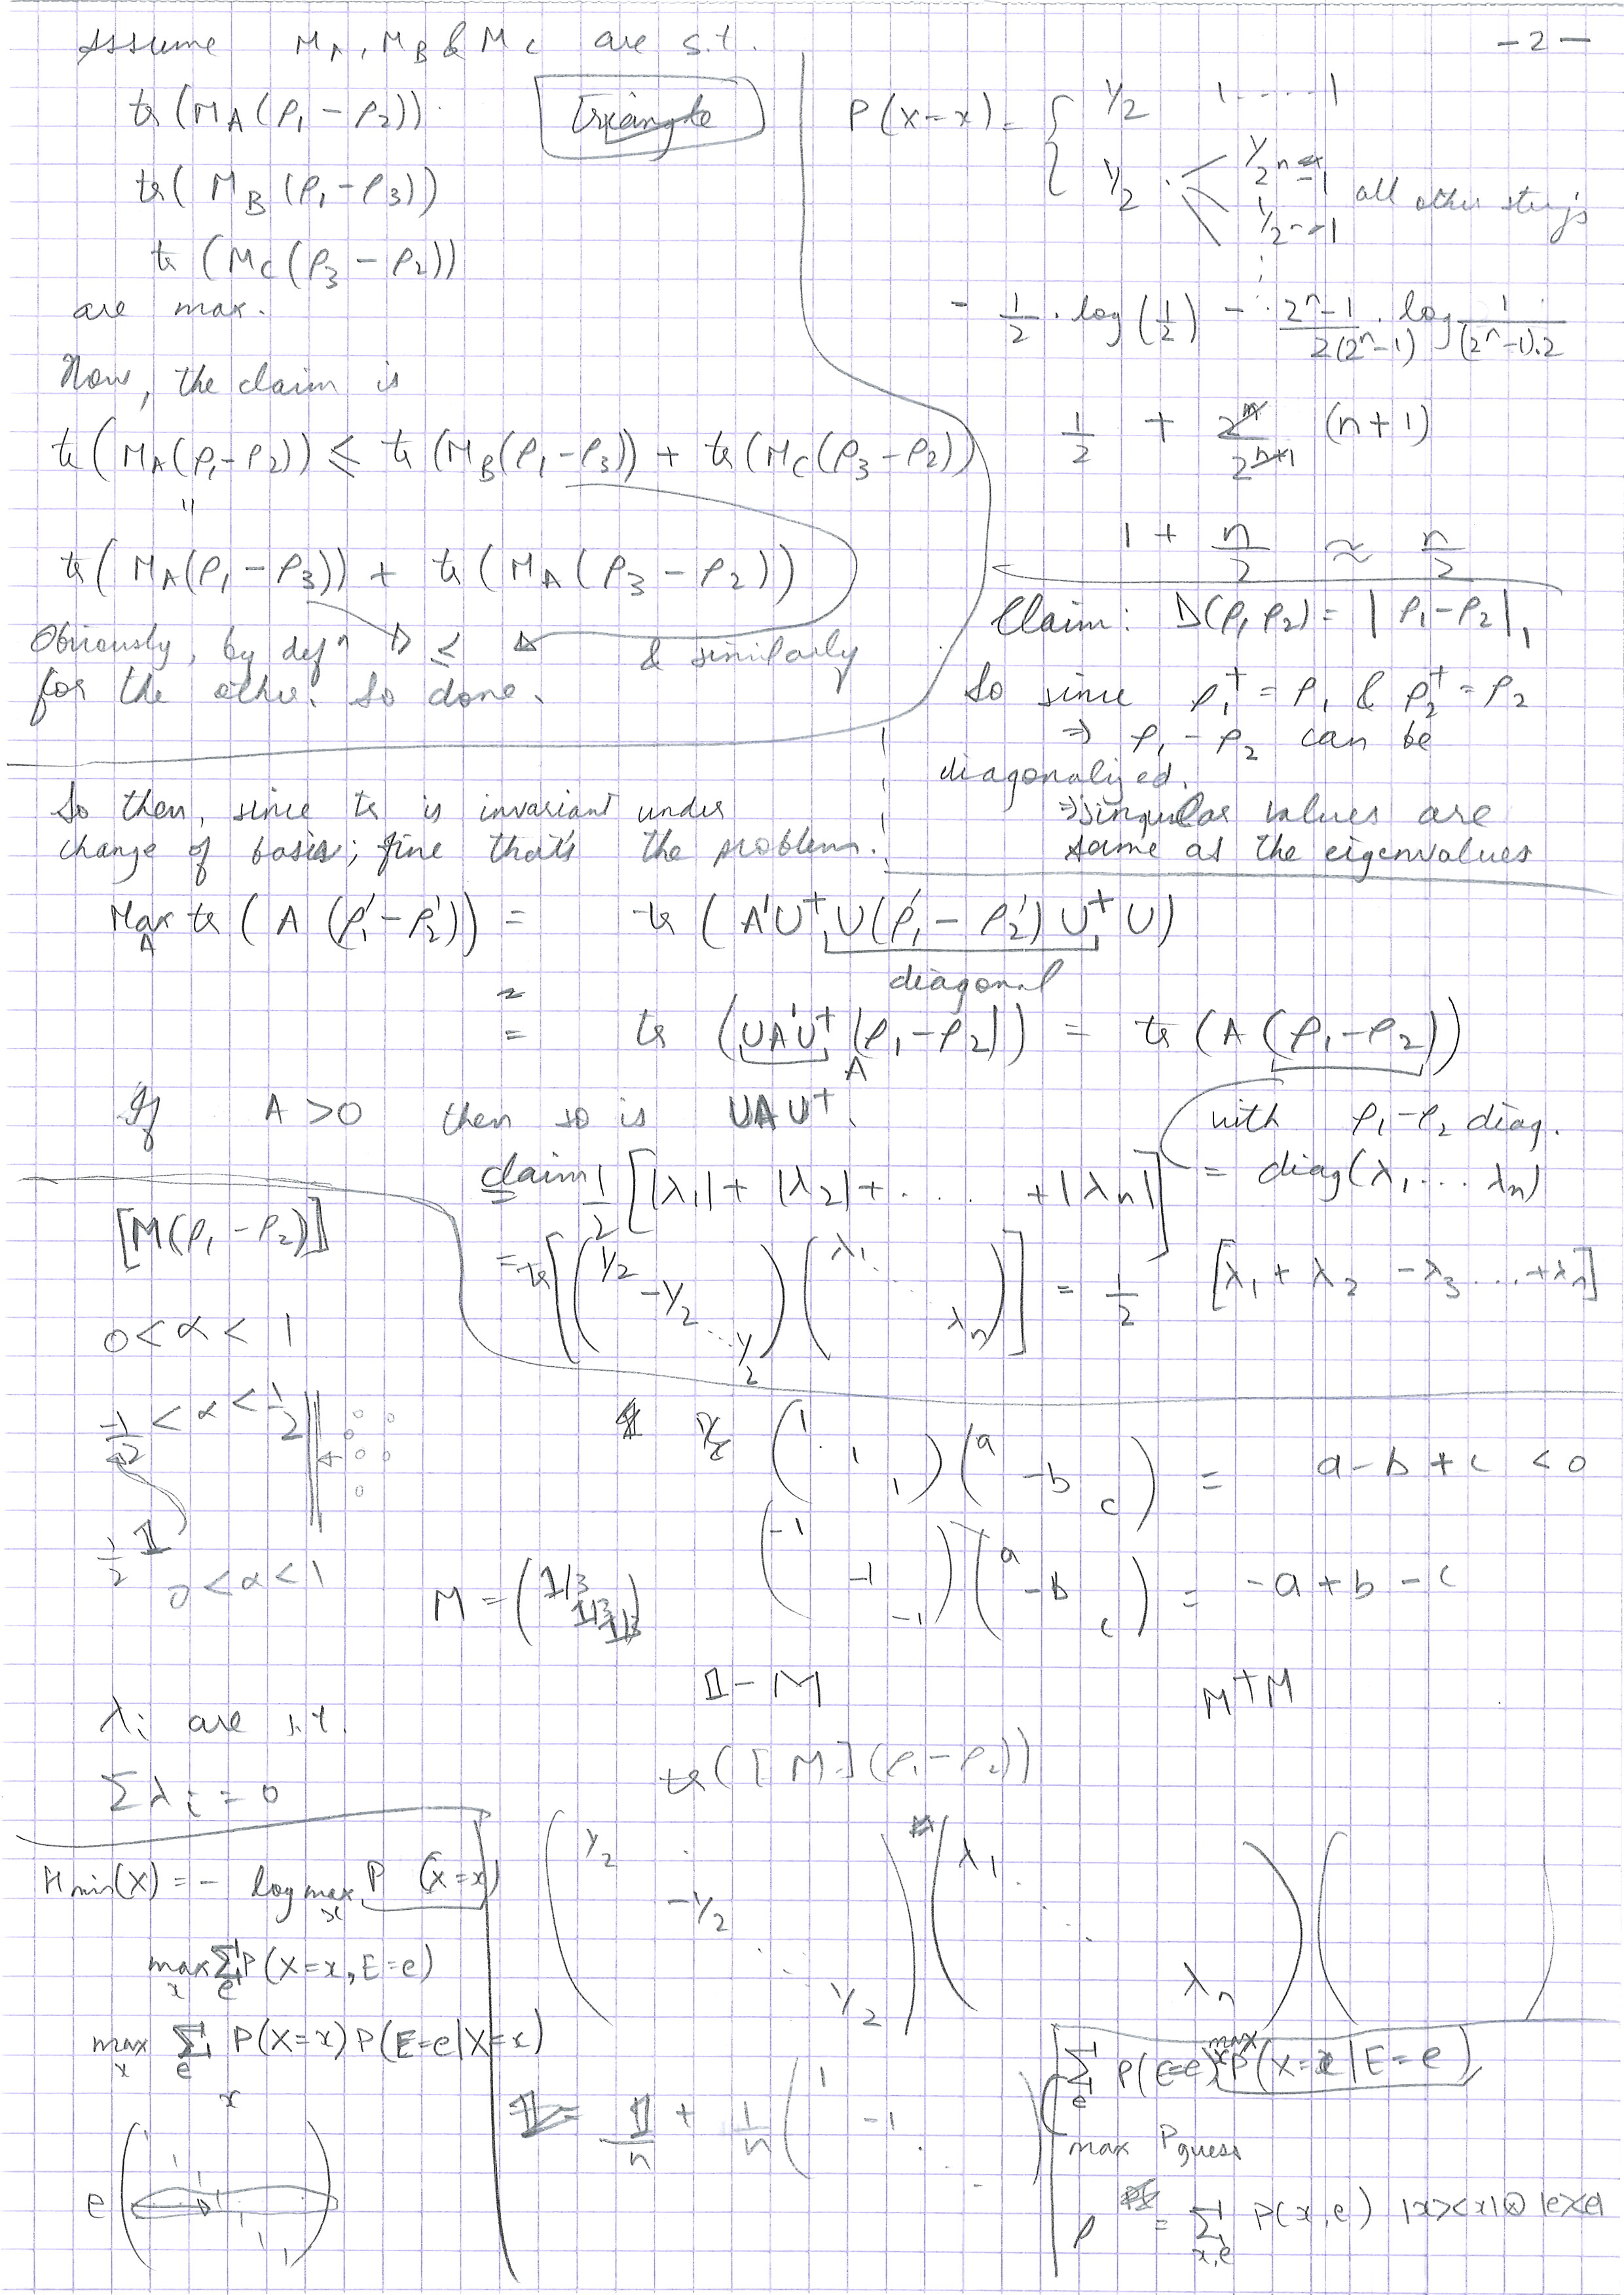 -2-
Assume M_A, M_B & M_C are s.t.
tr(M_A(ρ₁-ρ₂))
Triangle
tr(M_B(ρ₁-ρ₃))
tr(M_C(ρ₃-ρ₂))
are max.
Now, the claim is
tr(M_A(ρ₁-ρ₂)) ≤ tr(M_B(ρ₁-ρ₃)) + tr(M_C(ρ₃-ρ₂))
"
tr(M_A(ρ₁-ρ₃)) + tr(M_A(ρ₃-ρ₂))
Obviously, by defⁿ ≤ & similarly
for the other. So done.
P(X=x) = { 1/2 1....1
1/2 . 1/2ⁿ-1 all other strings
1/2ⁿ-1
- 1/2 . log(1/2) - (2ⁿ-1)/(2(2ⁿ-1)) . log 1/((2ⁿ-1).2)
1/2 + 2ⁿ/2ⁿ⁺¹ (n+1)
1 + n/2 ≈ n/2
Claim: D(ρ₁ρ₂) = |ρ₁-ρ₂|₁
So since ρ₁† = ρ₁ & ρ₂† = ρ₂
⇒ ρ₁-ρ₂ can be
diagonalized.
⇒ singular values are
same as the eigenvalues
So then, since tr is invariant under
change of basis; fine that's the problem.
Max_A tr(A(ρ₁'-ρ₂')) = tr(A'U†U(ρ₁'-ρ₂')U†U)
diagonal
= tr(UA'U†(ρ₁-ρ₂)) = tr(A(ρ₁-ρ₂))
A
If A>0 then so is UAU†.
with ρ₁-ρ₂ diag.
= diag(λ₁...λₙ)
claim 1/2 [|λ₁|+|λ₂|+.... +|λₙ|]
= tr[(1/2 -1/2 ... 1/2)(λ₁ .. λₙ)] = 1/2 [λ₁+λ₂-λ₃...+λₙ]
[M(ρ₁-ρ₂)]
0<α<1
-1/2 <α< 1/2
1/2 𝟙
0<α<1
(1 1 1)(a -b c) = a-b+c <0
(-1 -1 -1)(a -b c) = -a+b-c
M = (1/3 1/3 1/3)
𝟙-M
M†M
λᵢ are s.t.
tr([M](ρ₁-ρ₂))
Σλᵢ = 0
(1/2 -1/2 .. 1/2)(λ₁ .. λₙ)( )
H_min(X) = - log max_x P(X=x)
max_x Σ_e P(X=x, E=e)
max_x Σ_e P(X=x)P(E=e|X=x)
x
e
𝟙 = 𝟙/n + 1/n (1 -1 ..)
Σ_e P(E=e) max_x P(X=x|E=e)
max P_guess
ρ = Σ_x,e P(x,e) |x><x|⊗|e><e|